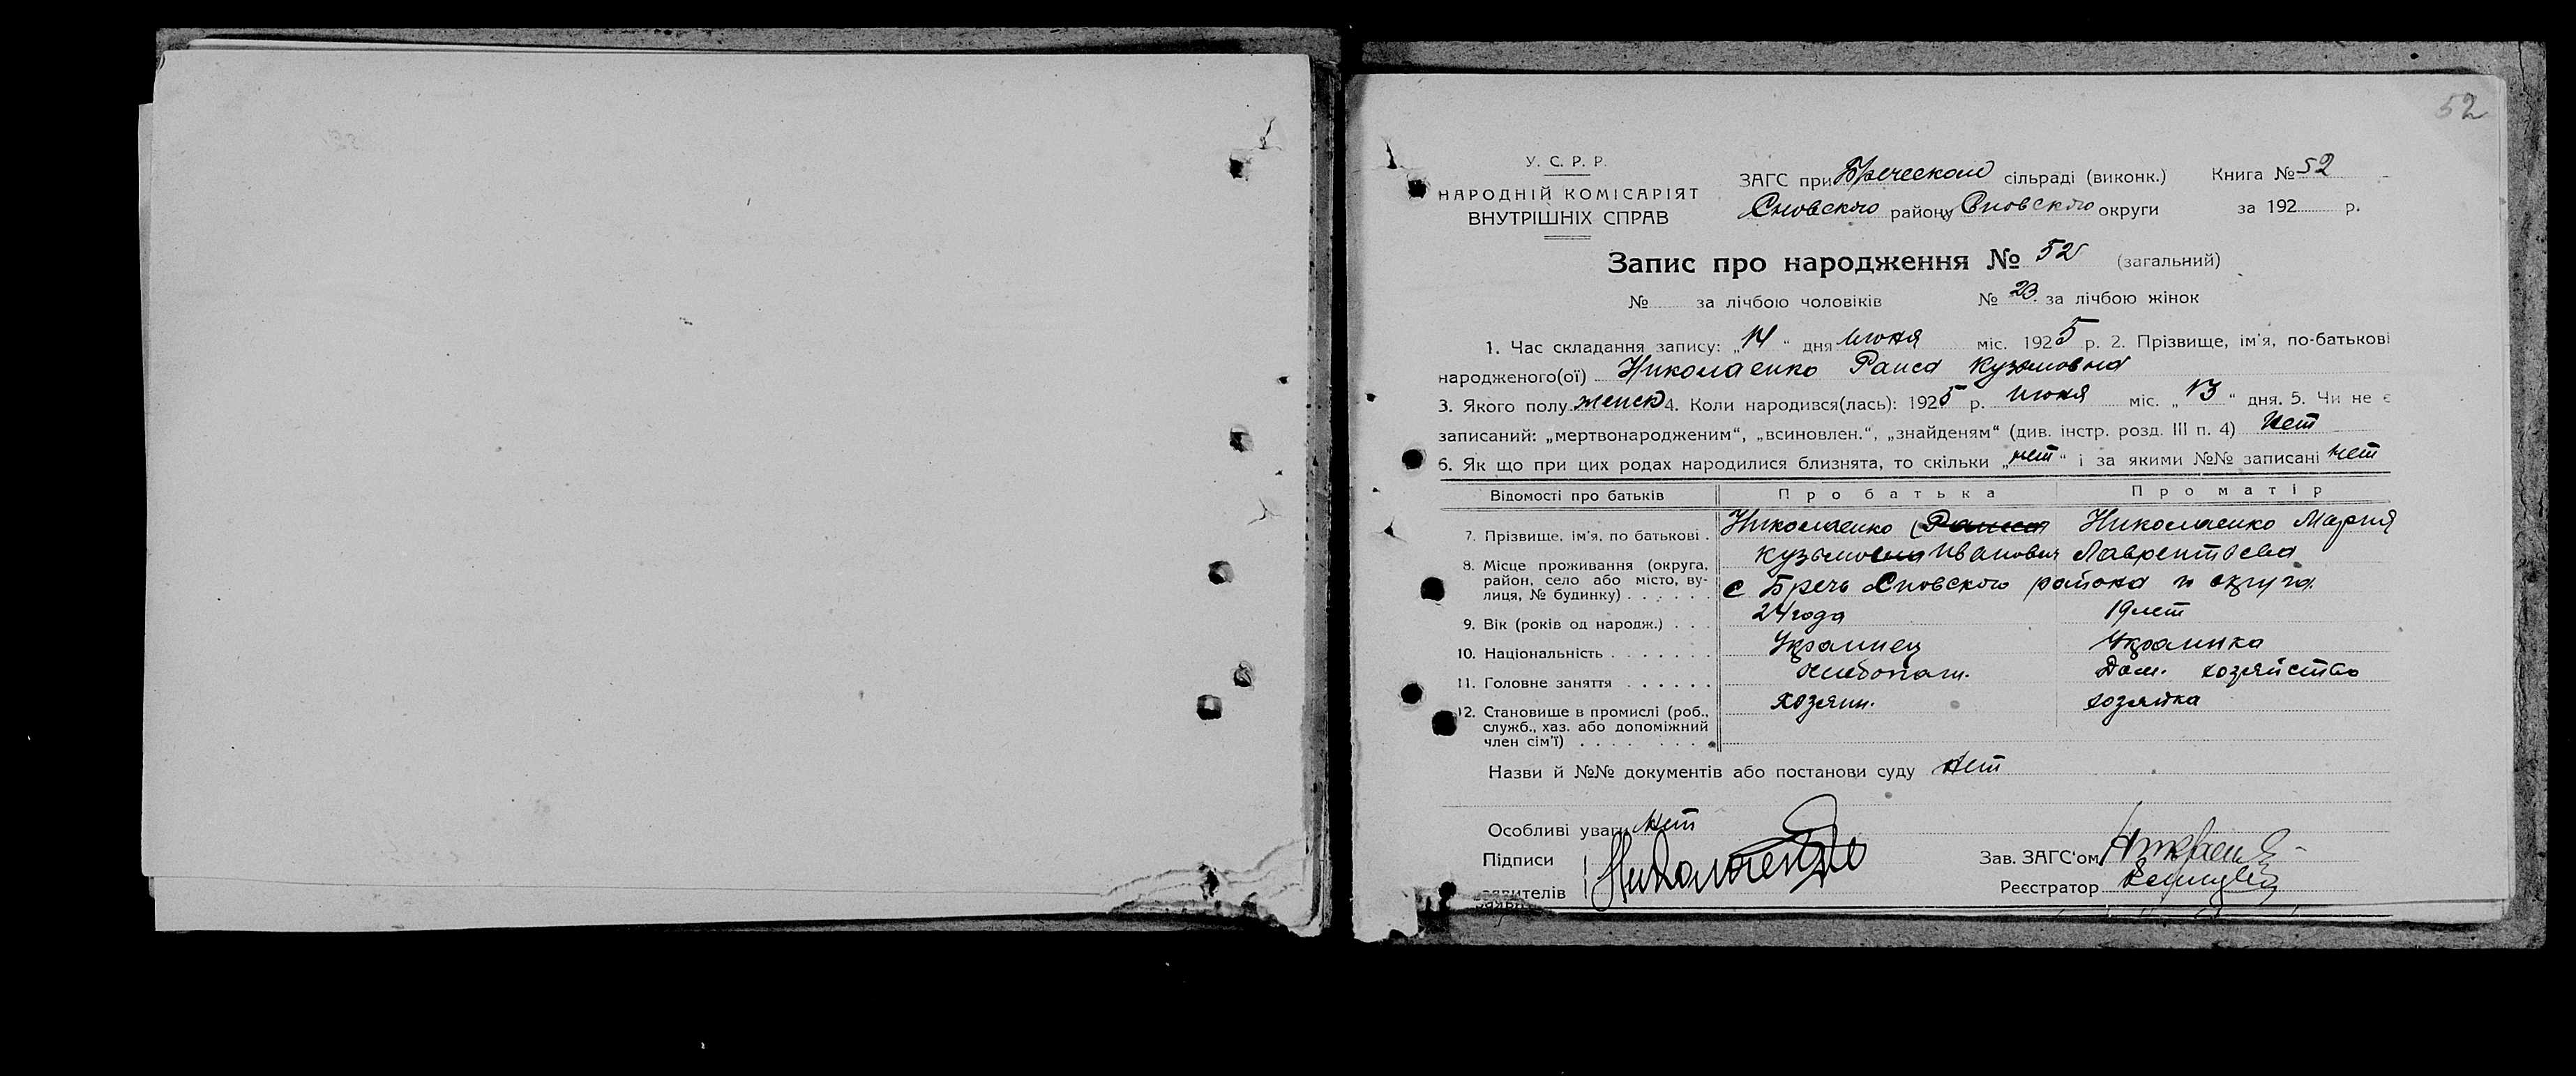 52
У. С. Р. Р.
НАРОДНІЙ КОМІСАРІЯТ
ВНУТРІШНІХ СПРАВ
ЗАГС при Бреческом сільраді (виконк.) Книга № 52
Сновского району Сновского округи за 192 р.
Запис про народження № 52 (загальний)
№ за лічбою чоловіків № 23. за лічбою жінок
1. Час складання запису: „14“ дня Июня міс. 1925 р. 2. Прізвище, ім'я, по-батькові
народженого(ої) Николаенко Раиса Кузьмовна
3. Якого полу женск 4. Коли народився(лась): 1925 р. Июня міс. „13“ дня. 5. Чи не є
записаний: „мертвонародженим“, „всиновлен.“, „знайденям“ (див. інстр. розд. III п. 4) Нет
6. Як що при цих родах народилися близнята, то скільки „нет“ і за якими №№ записані нет
Відомості про батьків Про батька Про матір
7. Прізвище, ім'я, по батькові . Николаенко (Раиса Николаенко Мария
Кузьмовна Иванович Лаврентьева
8. Місце проживання (округа, район, село або місто, вулиця, № будинку) . . . . . . с Бречь Сновского района и округа.
9. Вік (років од народж.) . . . 24 года 19 лет
10. Національність . . . . . . . Украинец Украинка
11. Головне заняття . . . . . . Хлебопаш. Дом. хозяйство
12. Становище в промислі (роб., служб., хаз. або допоміжний член сім'ї) . . . . . . . . Хозяин. хозяйка
Назви й №№ документів або постанови суду Нет
Особливі уваги Нет
Підписи Николаенко
Зав. ЗАГС'ом
Реєстратор